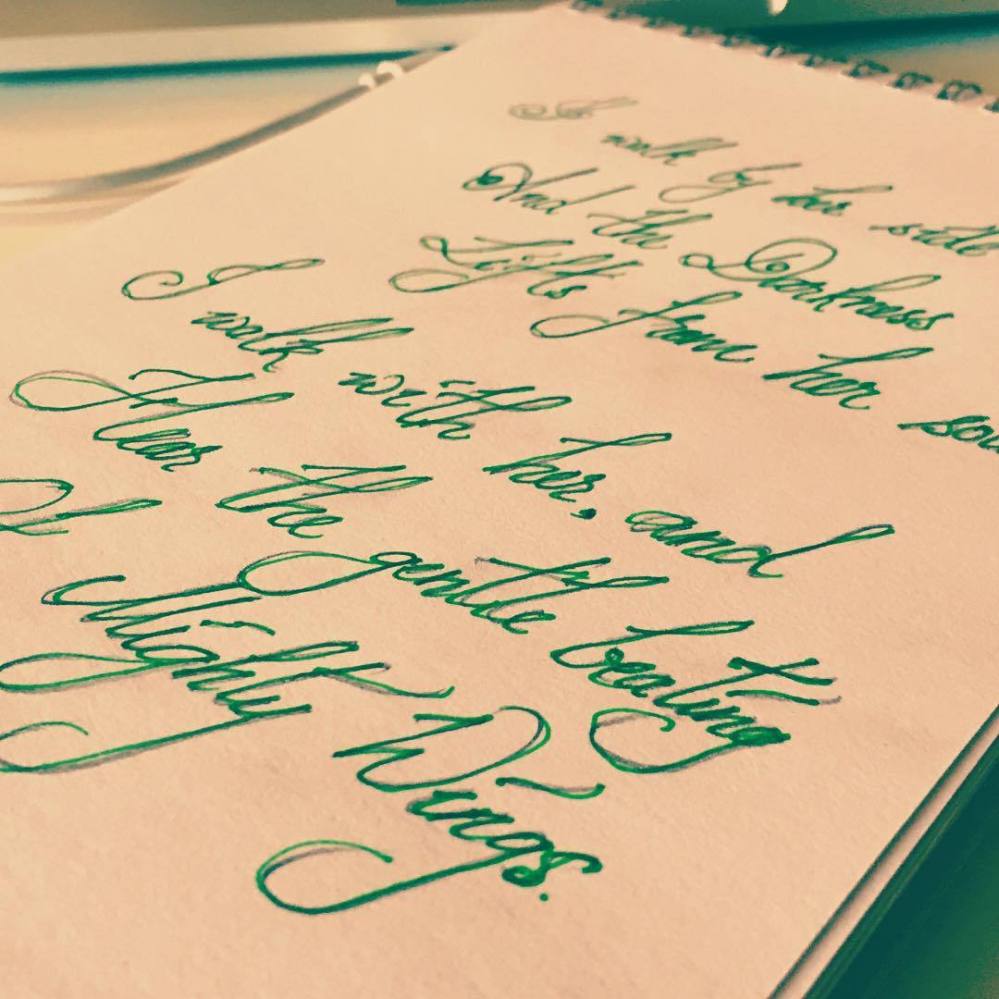 I walk by her side
And the Darkness
Lifts from her sou
I walk with her, and
Hear the gentle beating
Of Mighty Wings.